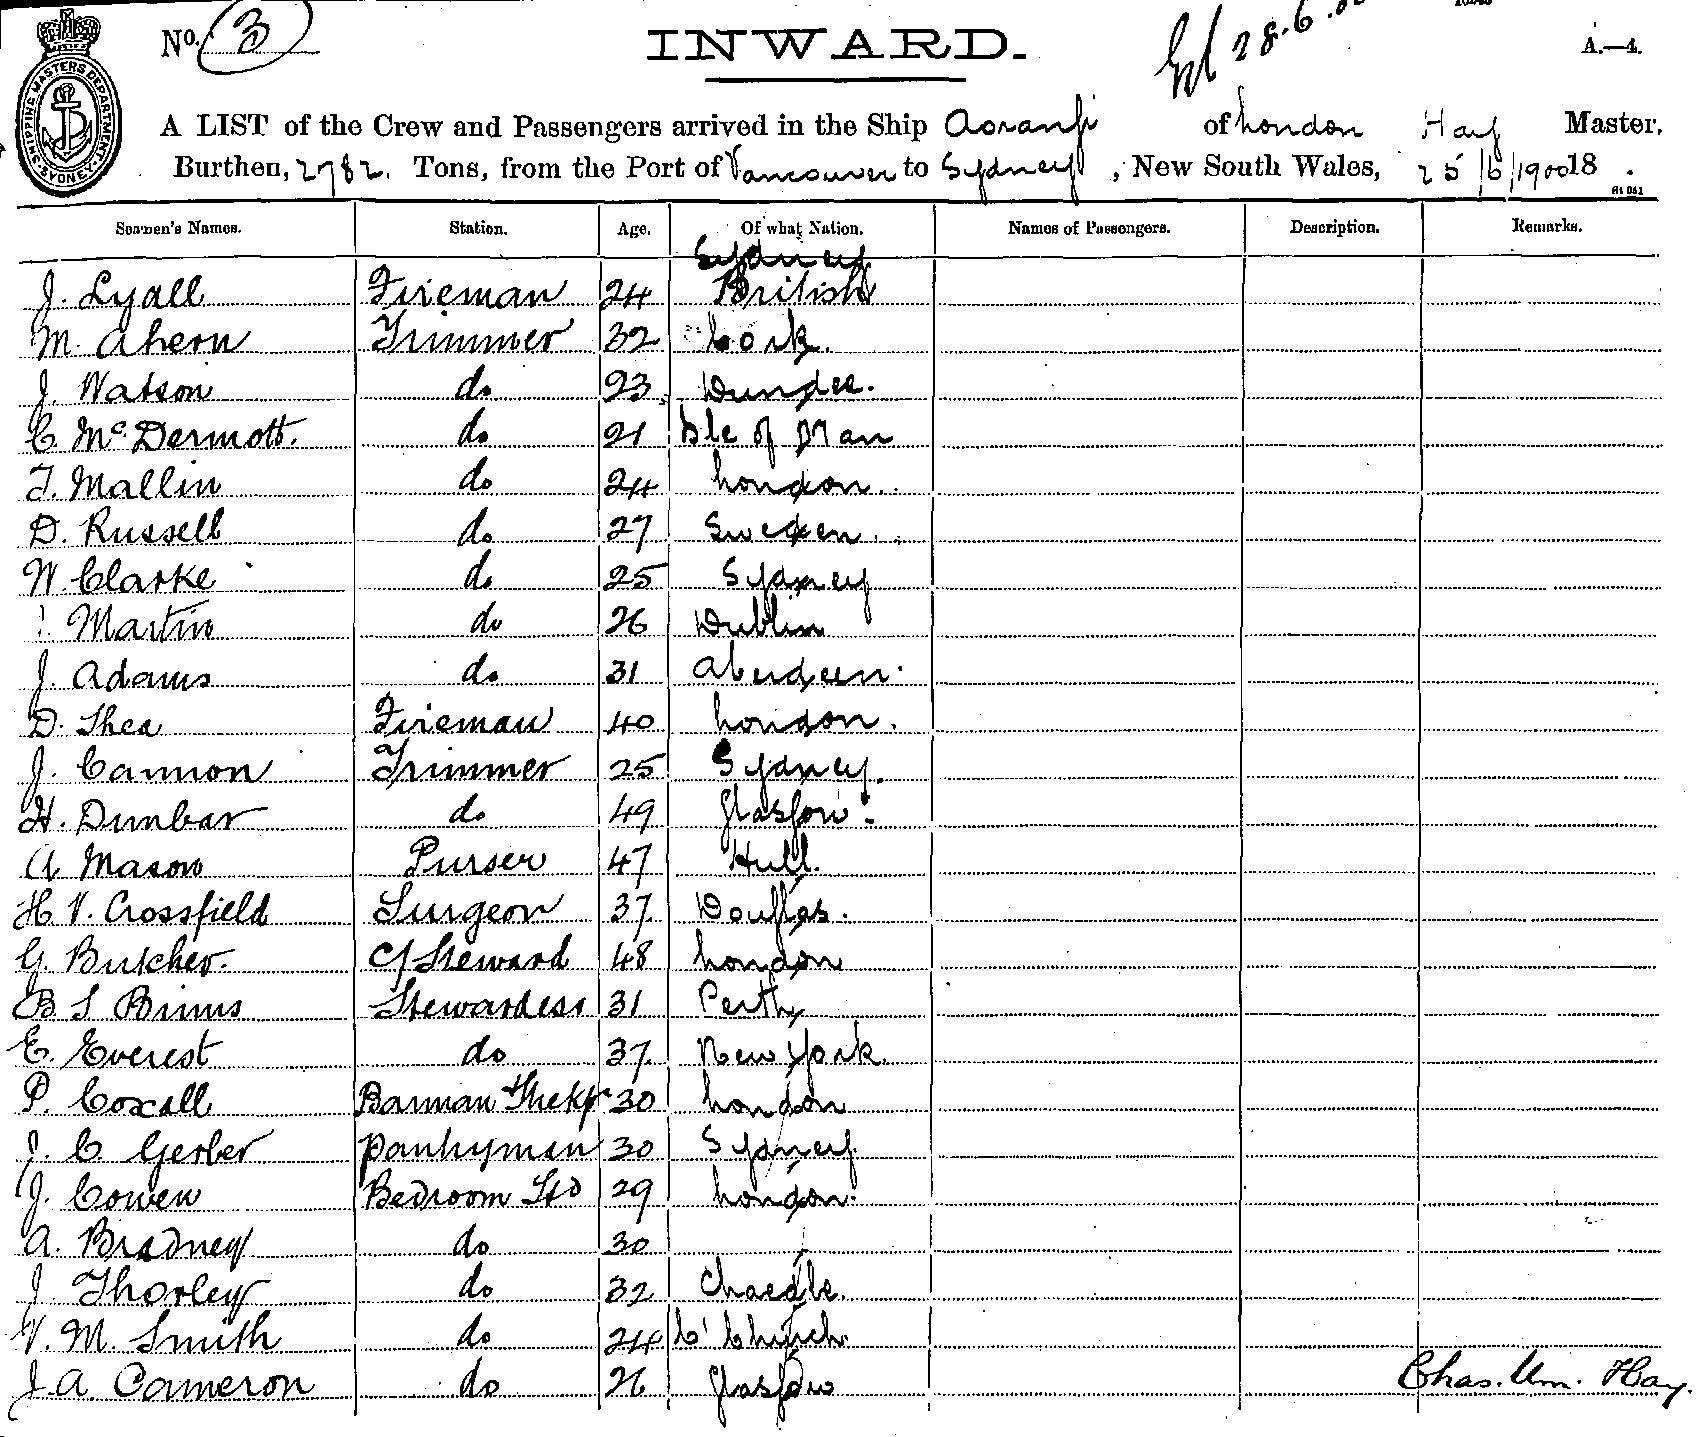 No. 3
INWARD.
28.6.00
A.—4.
SHIPPING MASTERS DEPARTMENT SYDNEY
A LIST of the Crew and Passengers arrived in the Ship Aorangi of London Hay Master,
Burthen, 2782. Tons, from the Port of Vancouver to Sydney, New South Wales, 25/6/1900 18 .
Seamen's Names. Station. Age. Of what Nation. Names of Passengers. Description. Remarks.
Sydney
J. Lyall Fireman 24 British
M. Ahern Trimmer 32 Cork.
J. Watson do 23 Dundee.
C McDermott. do 21 Isle of Man
T. Mallin do 24 London.
D. Russell do 27 Sweden.
W. Clarke do 25 Sydney
Martin do 26 Dublin
J. Adams do 31 Aberdeen.
D. Shea Fireman 40 London.
J. Cannon Trimmer 25 Sydney.
H. Dunbar do 49 Glasgow.
A Mason Purser 47 Hull.
H V. Crossfield Surgeon 37 Douglas.
G. Butcher. Cf Steward 48 London
B S Binns Stewardess 31 Perth
E. Everest do 37 New York.
P. Coxall Barman Stkpr 30 London
J. C Gerber Pantryman 30 Sydney
J. Cowen Bedroom Std 29 London.
A. Bradney do 30
J. Thorley do 32 Cheadle.
V. M. Smith do 24 C'Church.
J. A. Cameron do 26 Glasgow
Chas. Wm. Hay.